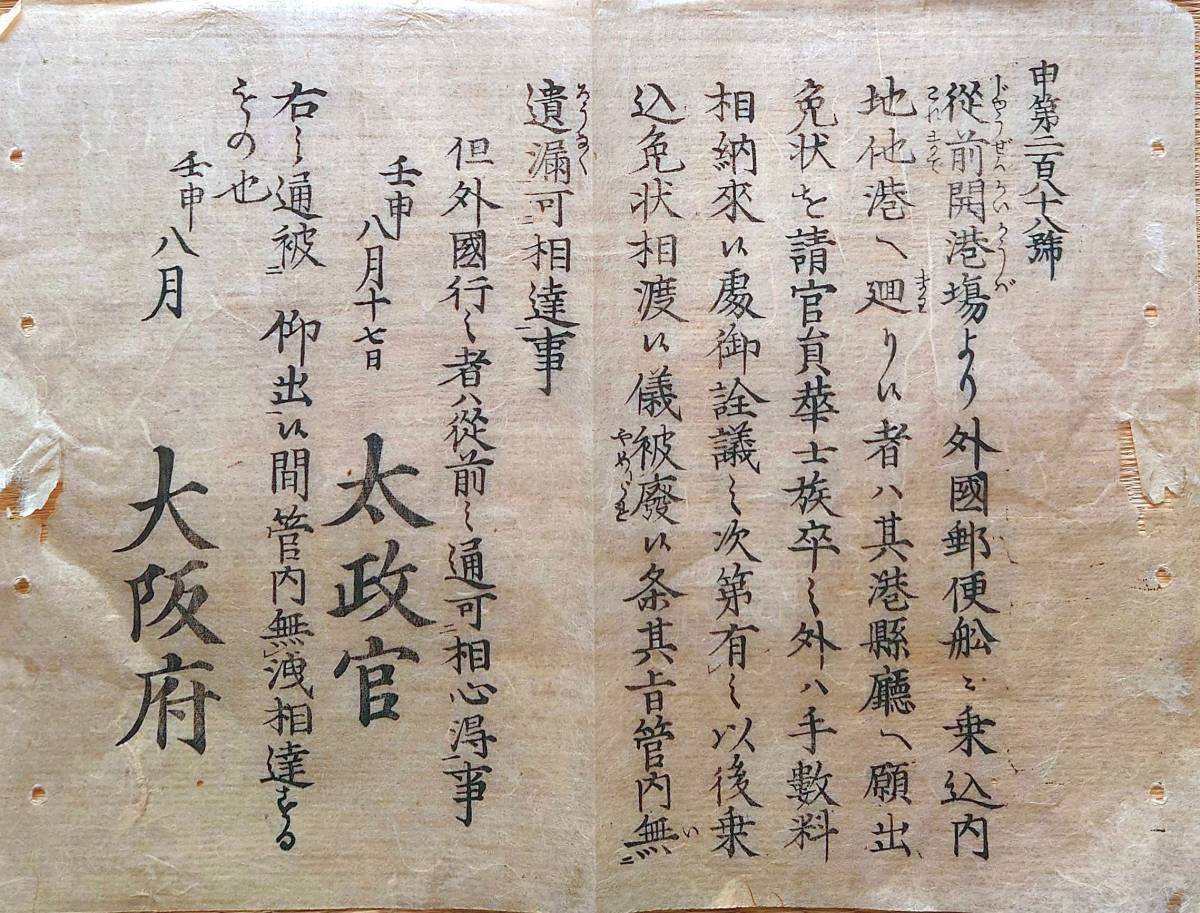 申第二百八十八號
從前開港塲より外國郵便舩ニ乗込内
地他港へ廻り候者ハ其港縣廳へ願出
免状を請官員華士族卒之外ハ手數料
相納來候處御詮議之次第有之以後乗
込免状相渡候儀被廢候条其旨管内無
遺漏可相達事
但外國行之者ハ從前之通可相心得事
壬申八月十七日 太政官
右之通被 仰出候間管内無洩相達する
もの也
壬申八月 大阪府